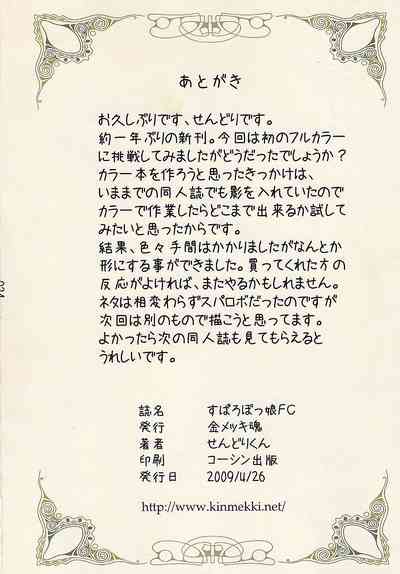 あとがき
お久しぶりです、せんどりです。
約一年ぶりの新刊。今回は初のフルカラー
に挑戦してみましたがどうだったでしょうか?
カラー本を作ろうと思ったきっかけは、
いままでの同人誌でも影を入れていたので
カラーで作業したらどこまで出来るか試して
みたいと思ったからです。
結果、色々手間はかかりましたがなんとか
形にする事ができました。買ってくれた方の
反応がよければ、またやるかもしれません。
ネタは相変わらずスパロボだったのですが
次回は別のもので描こうと思ってます。
よかったら次の同人誌も見てもらえると
うれしいです。
誌名 すぱろぼっ娘FC
発行 金メッキ魂
著者 せんどりくん
印刷 コーシン出版
発行日 2009/4/26
http://www.kinmekki.net/